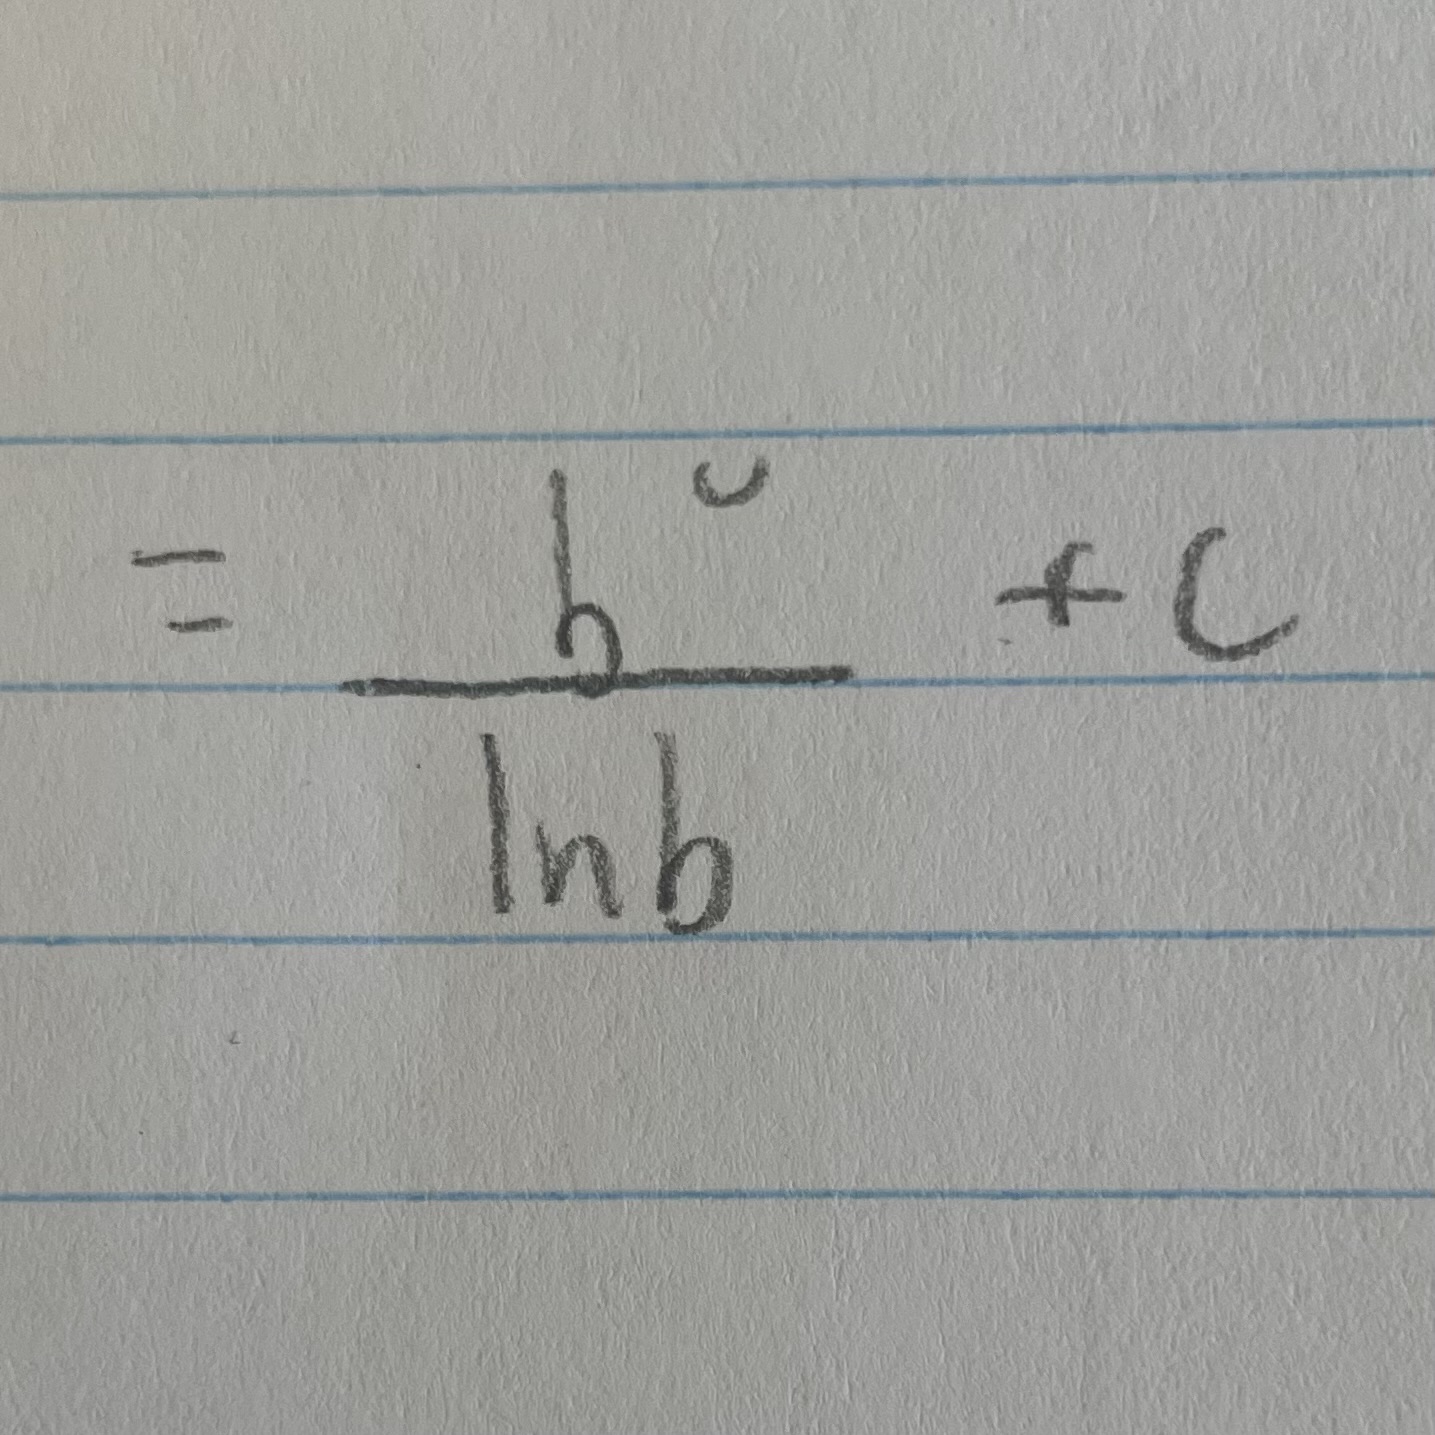 = b^u / ln b + C